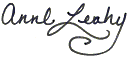 Anne Leahy